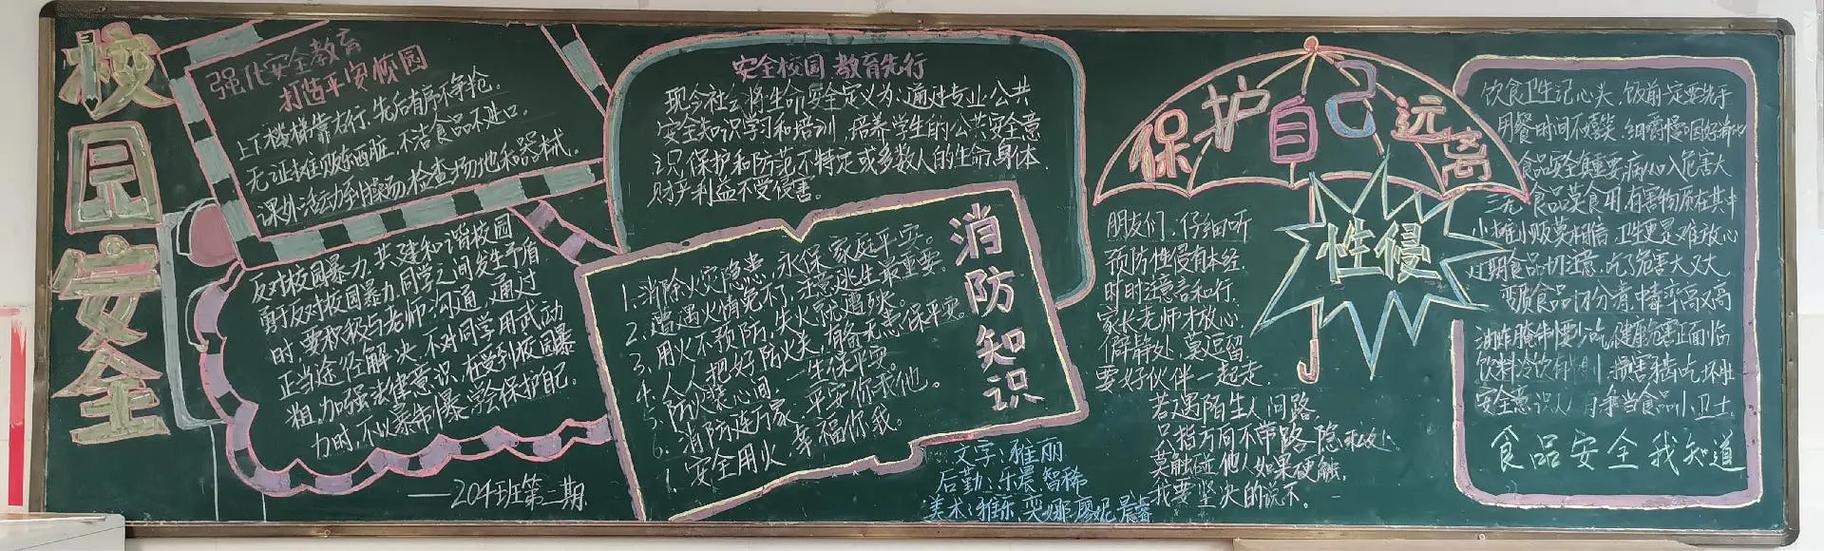 校园安全
强化安全教育
打造平安校园
上下楼梯靠右行,先后有序不争抢。
无证摊贩东西脏,不洁食品不进口。
课外活动到操场,检查场地和器械。
反对校园暴力,共建和谐校园
勇于反对校园暴力,同学之间发生矛盾
时,要积极与老师沟通,通过
正当途径解决,不对同学用武动
粗,加强法律意识,在受到校园暴
力时,不以暴制暴,学会保护自己。
——204班第二期
安全校园 教育先行
现今社会将生命安全定义为:通过专业公共
安全知识学习和培训,培养学生的公共安全意
识,保护和防范不特定或多数人的生命、身体、
财产利益不受侵害。
消防知识
1.消除火灾隐患,永保家庭平安。
2.遭遇火情莫不了,注意逃生最重要。
3.用火不预防,失火就遭殃。
4.人人把好防火关,有备无患保平安。
5.防火装心间,一生保平安。
6.消防连万家,平安你我他。
7.安全用火 幸福你我。
文字:雅丽
后勤:乐晨 智稀
保护自己远离
性侵
朋友们,仔细听
预防性侵有本经.
时时注意言和行.
家长老师才放心.
僻静处,莫逗留
要好伙伴一起走.
若遇陌生人问路.
只指方向不带路 隐私处.
莫触碰 他人如果硬触,
我要坚决的说不.
饮食卫生记心头,饭前一定要洗手
用餐时间不嬉笑,细嚼慢咽好消化
食品安全真重要,病从口入危害大
三无食品莫食用,有害物质在其中
小摊小贩莫相信,卫生更是难放心
过期食品切注意,吃了危害大又大
变质食品勿分肴,中毒率高又高
饮料冷饮
食品安全我知道